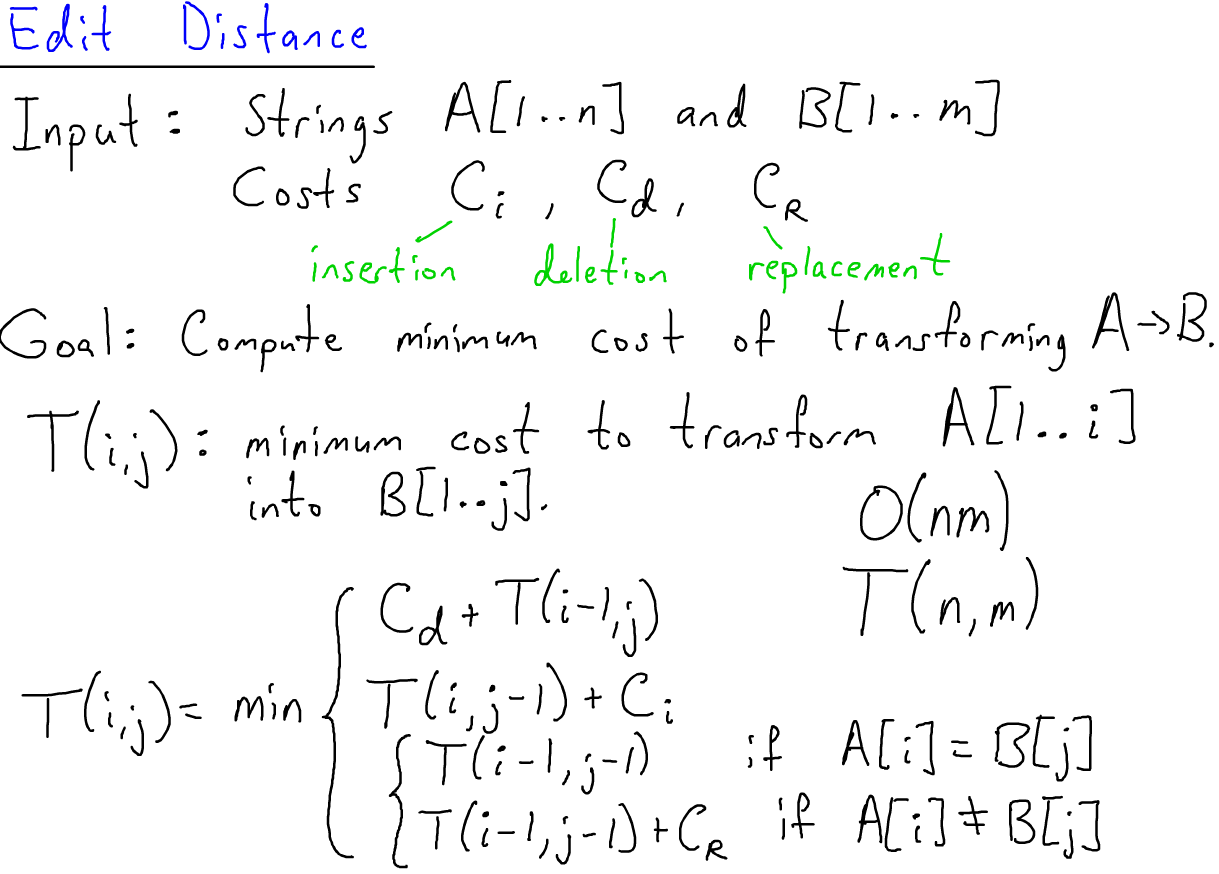 Edit Distance
Input: Strings A[1..n] and B[1..m]
Costs C_i, C_d, C_R
insertion deletion replacement
Goal: Compute minimum cost of transforming A→B.
T(i,j): minimum cost to transform A[1..i]
into B[1..j].
O(nm)
T(n,m)
T(i,j)= min { C_d + T(i-1,j)
T(i,j-1) + C_i
{ T(i-1,j-1) if A[i]=B[j]
T(i-1,j-1)+C_R if A[i]≠B[j]